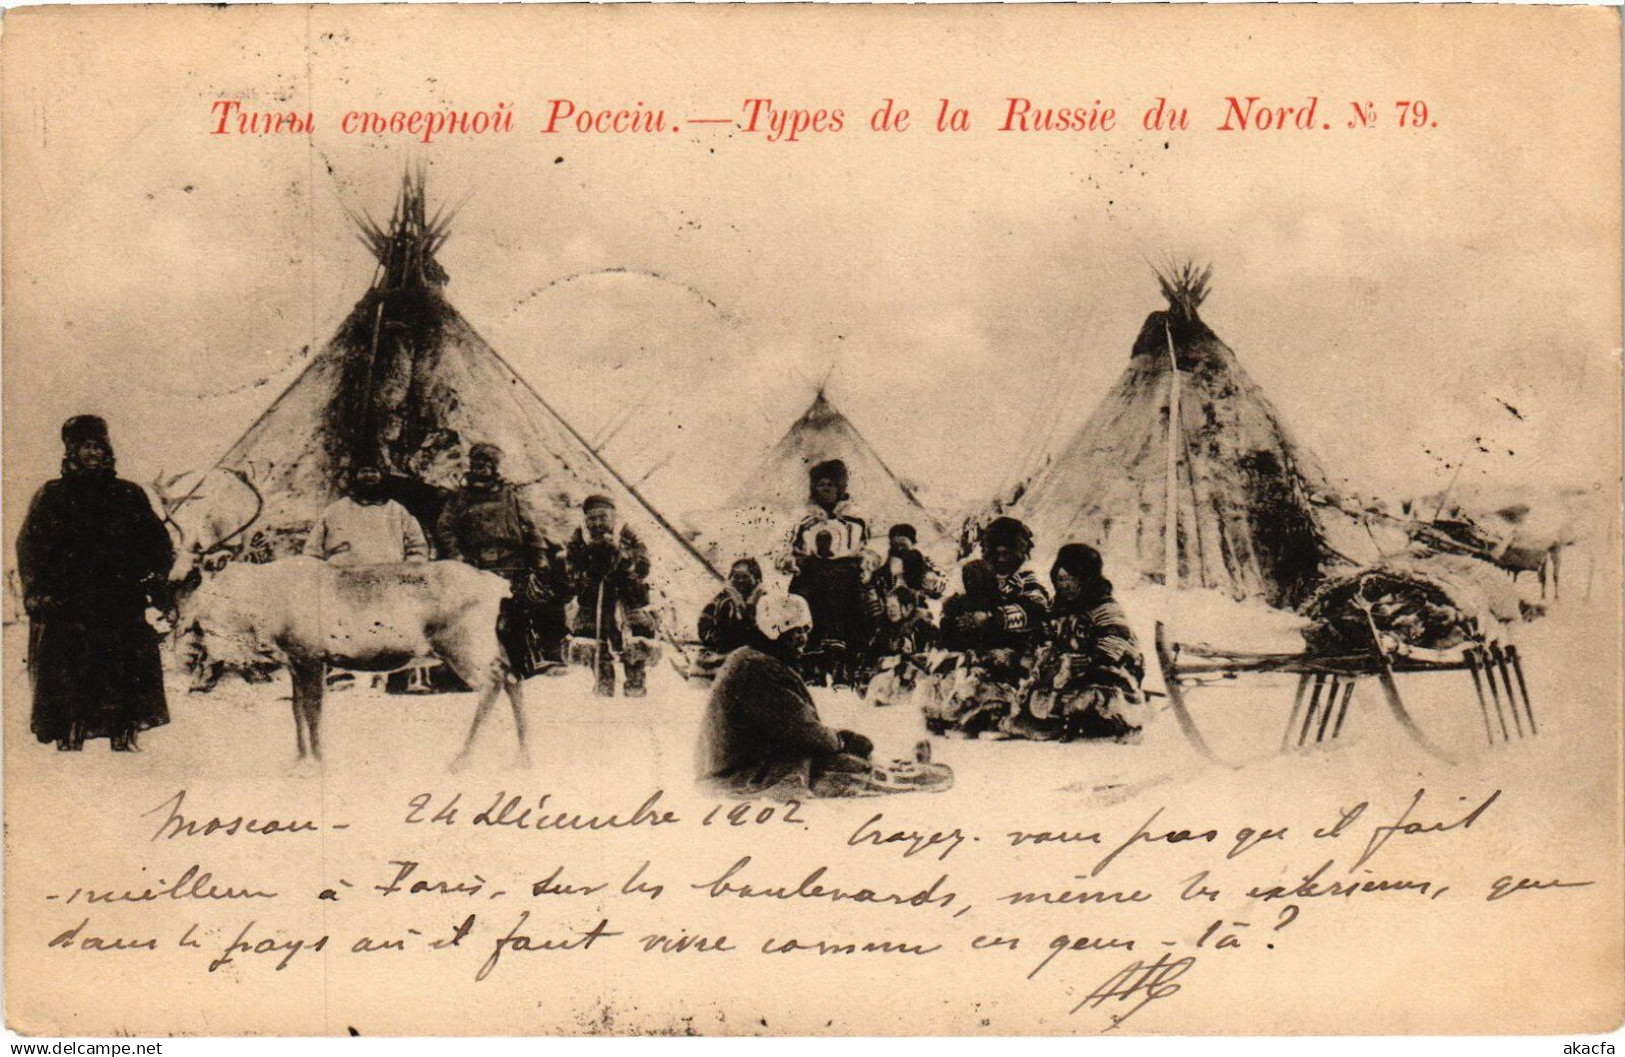 Типы сѣверной Россіи.—Types de la Russie du Nord. № 79.
Moscou - 24 Décembre 1902. Croyez-vous pas qu'il fait
-meilleur à Paris, sur les boulevards, même les extérieurs, que
dans le pays où il faut vivre comme ces gens-là?
akacfa
www.delcampe.net